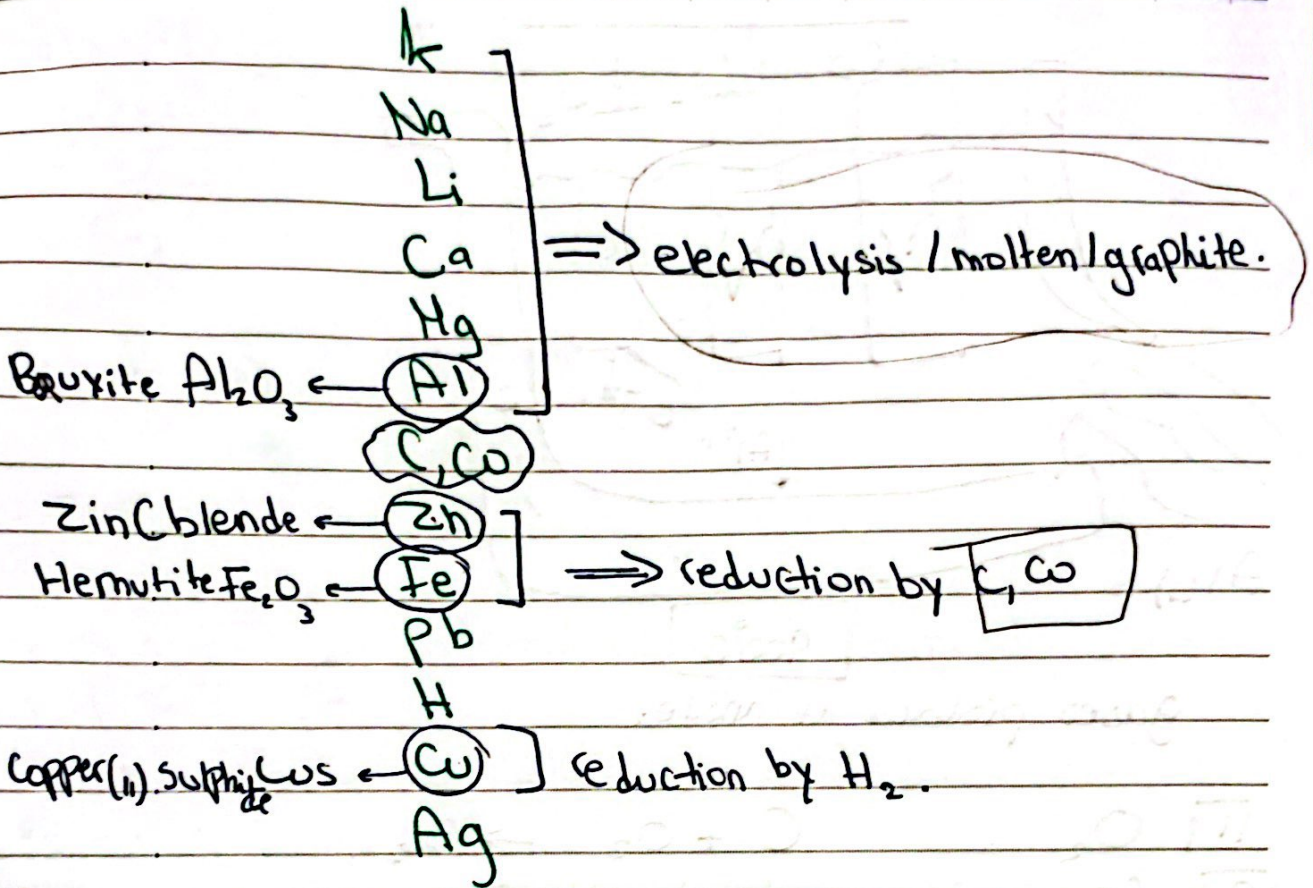 K
Na
Li
Ca => electrolysis / molten / graphite.
Mg
Bauxite Al₂O₃ ← Al
C, CO
Zinc blende ← Zn
Hemutite Fe₂O₃ ← Fe => reduction by C, CO
Pb
H
Copper(II). Sulphide CuS ← Cu reduction by H₂.
Ag